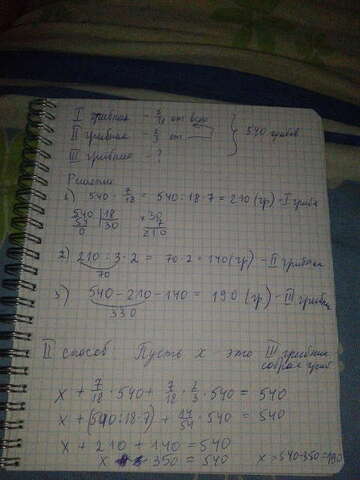 I грибник - 7/18 от всех
II грибник - 2/3 от
III грибник - ?
} 540 грибов
Решение
1) 540 · 7/18 = 540 : 18 · 7 = 210 (гр) - I грибн
540 | 18
54 | 30
0
× 30
7
210
2) 210 : 3 · 2 = 70 · 2 = 140 (гр) - II грибник
70
3) 540 - 210 - 140 = 190 (гр) - III грибник
330
II способ: Пусть x - это III грибник
собрал гриб
x + 7/18 · 540 + 7/18 · 2/3 · 540 = 540
x + (540 : 18 · 7) + 14/54 · 540 = 540
x + 210 + 140 = 540
x 350 = 540 x = 540-350=190